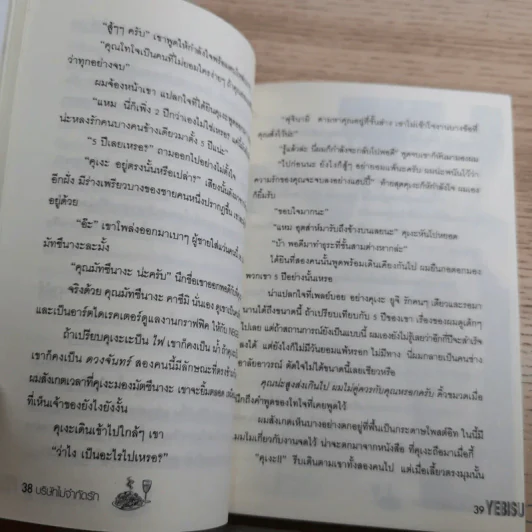 "สู้ๆๆ ครับ" เขาพูดให้กำลังใจพร้อม
"คุณโทโจเป็นคนที่ไม่ยอมใครง่ายๆ
ว่าทุกอย่างจบ"
ผมจ้องหน้าเขา แปลกใจที่ได้ยินคุเงะพูด
"แหม นี่ก็เพิ่ง 2 ปีกว่าเองไม่ใช่เหรอ
น่ะหลงรักคนบางคนข้างเดียวมาตั้ง 5 ปีแน่ะ"
"5 ปีเลยเหรอ" ถามออกไปอย่างไม่ตั้งใจ
"คุเงะ อยู่ตรงนั้นหรือเปล่า"
อีกฝั่ง มีร่างเพรียวบางของชายคนหนึ่งปรากฏขึ้น
อยู่ด้วย
"อ๊ะ" เขาโพล่งออกมาเบาๆ ผู้ชายใส่แว่นคนนั้น
มัทซึนางะละมั้ง
"คุณมัทซึนางะ น่ะครับ" นึกชื่อเขาออกพอดี
จริงด้วย คุณมัทซึนางะ คาซึมิ นั่นเอง
และเป็นอาร์ตไดเรคเตอร์ดูแลงานกราฟฟิค ให้กับ
ถ้าเปรียบคุเงะจะเป็น ไฟ เขาก็คงเป็น น้ำ
เขาก็คงเป็น ดวงจันทร์ สองคนนี้มีลักษณะที่ตรงข้าม
ผมสังเกตเวลาที่คุเงะมองมัตซึนางะ เขาจะยิ้มตลอด
ที่เห็นเจ้าของยังไงยังงั้น
คุเงะเดินเข้าไปใกล้ๆ เขา
"ว่าไง เป็นอะไรไปเหรอ?"
38 บริษัทไม่จำกัดรัก
ตามหาคุณอยู่ที่ชั้นล่าง เขาไม่เข้าใจงานบางข้อที่
คุณสั่งไว้น่ะ"
"รู้แล้วล่ะ นี่ผมก็กำลังจะกลับไปพอดี"
"ไปก่อนนะ ยังไงก็สู้ๆ อย่ายอมแพ้นะครับ ผมน่ะพนันไว้ว่า
ความรักของคุณจะจบลงอย่างแฮปปี้" ท้ายสุดคุเงะก็ให้กำลังใจ ผมเอง
ก็ยิ้มรับ
"ขอบใจมากนะ"
"แหม อุตส่าห์มารับถึงข้างบนเลยนะ" คุเงะหันไปหยอด
"บ้า พอดีมาทำธุระที่ชั้นสามต่างหากล่ะ"
ได้ยินที่สองคนนั้นพูดพร้อมเดินเคียงกันไป ผมยืนกอดอกมอง
พวกเขา 5 ปีอย่างนั้นเหรอ
น่าแปลกใจที่เพลย์บอย อย่างคุเงะ ยูจิ รักคนๆ เดียวและรอมา
นานได้ถึงขนาดนี้ ถ้าเปรียบเทียบกับ 5 ปีของเขา เรื่องของผมดูเด็กๆ
ไปเลย แต่ถ้าสถานการณ์ยังเป็นแบบนี้ ผมเองยังไม่รู้เลยว่าอีกกี่ปีจะสำเร็จ
แต่ยังไงก็ไม่มีวันยอมแพ้หรอก ไม่มีทาง นี่ผมกลายเป็นคนช่าง
อาลัยอาวรณ์ ตัดใจไม่ได้ขนาดนี้เลยเชียวหรือ
คุณน่ะสูงส่งเกินไป ผมไม่คู่ควรกับคุณหรอกครับ คิ้วขมวดเมื่อ
นึกถึงคำพูดของโทโจที่เคยพูดไว้
ผมสังเกตเห็นบางอย่างตกอยู่ที่พื้นเป็นกระดาษโพสต์อิท ในนี้มี
เมโมเกี่ยวกับงานจดไว้ น่าจะตกมาจากหนังสือ ที่คุเงะถือมาเมื่อกี้
"คุเงะ!!" รีบเดินตามเขาทั้งสองคนไป แต่เมื่อเลี้ยวตรงมุมนั้น
39 YEBISU